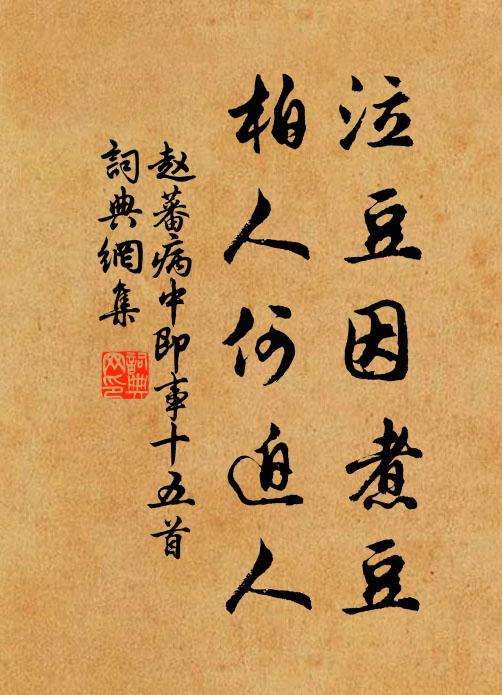 泣豆因煮豆
柏人何迫人
赵蕃病中即事十五首
詞典網集
詞典網印